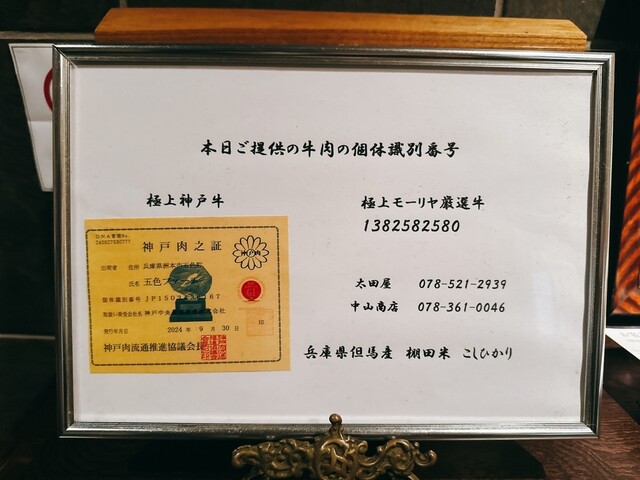 本日ご提供の牛肉の個体識別番号
極上神戸牛
極上モーリヤ厳選牛
1382582580
神戸肉之証
出荷者 住所 兵庫県洲本市五色町
氏名 五色
個体識別番号
発行年月日 2024年9月30日
神戸肉流通推進協議会長
太田屋 078-521-2939
中山商店 078-361-0046
兵庫県但馬産 棚田米 こしひかり